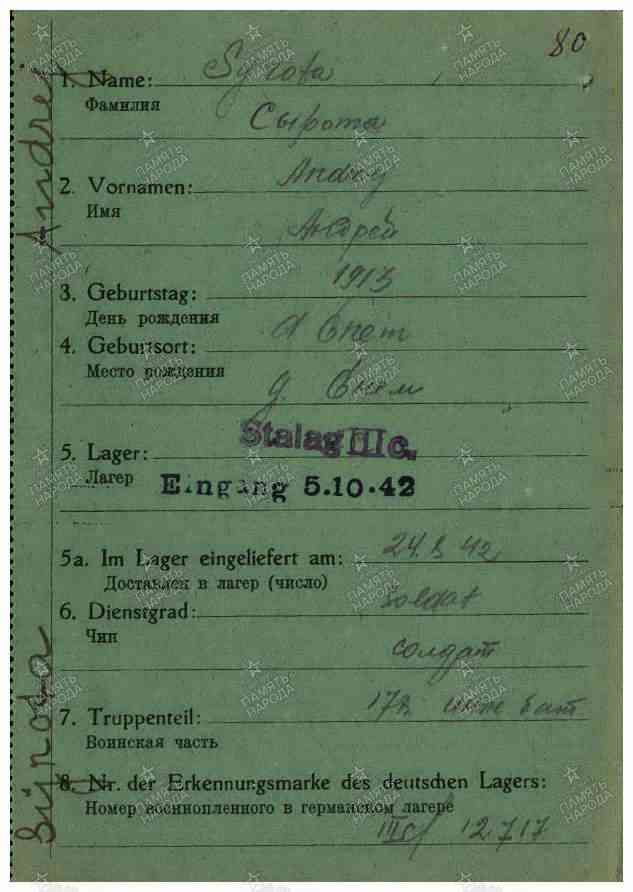 80
1. Name: Syrota
Фамилия
Сырота
2. Vornamen: Andrey
Имя
Андрей
3. Geburtstag: 1913
День рождения
4. Geburtsort:
Место рождения
д.
5. Lager: Stalag III C.
Лагер
Eingang 5.10.42
5a. Im Lager eingeliefert am: 24. 42
Доставлен в лагер (число)
6. Dienstgrad: Soldat
Чин
солдат
7. Truppenteil: бат
Воинская часть
8. Nr. der Erkennungsmarke des deutschen Lagers:
Номер военнопленного в германском лагере
III C/ 12717
Andrej
ПАМЯТЬ НАРОДА